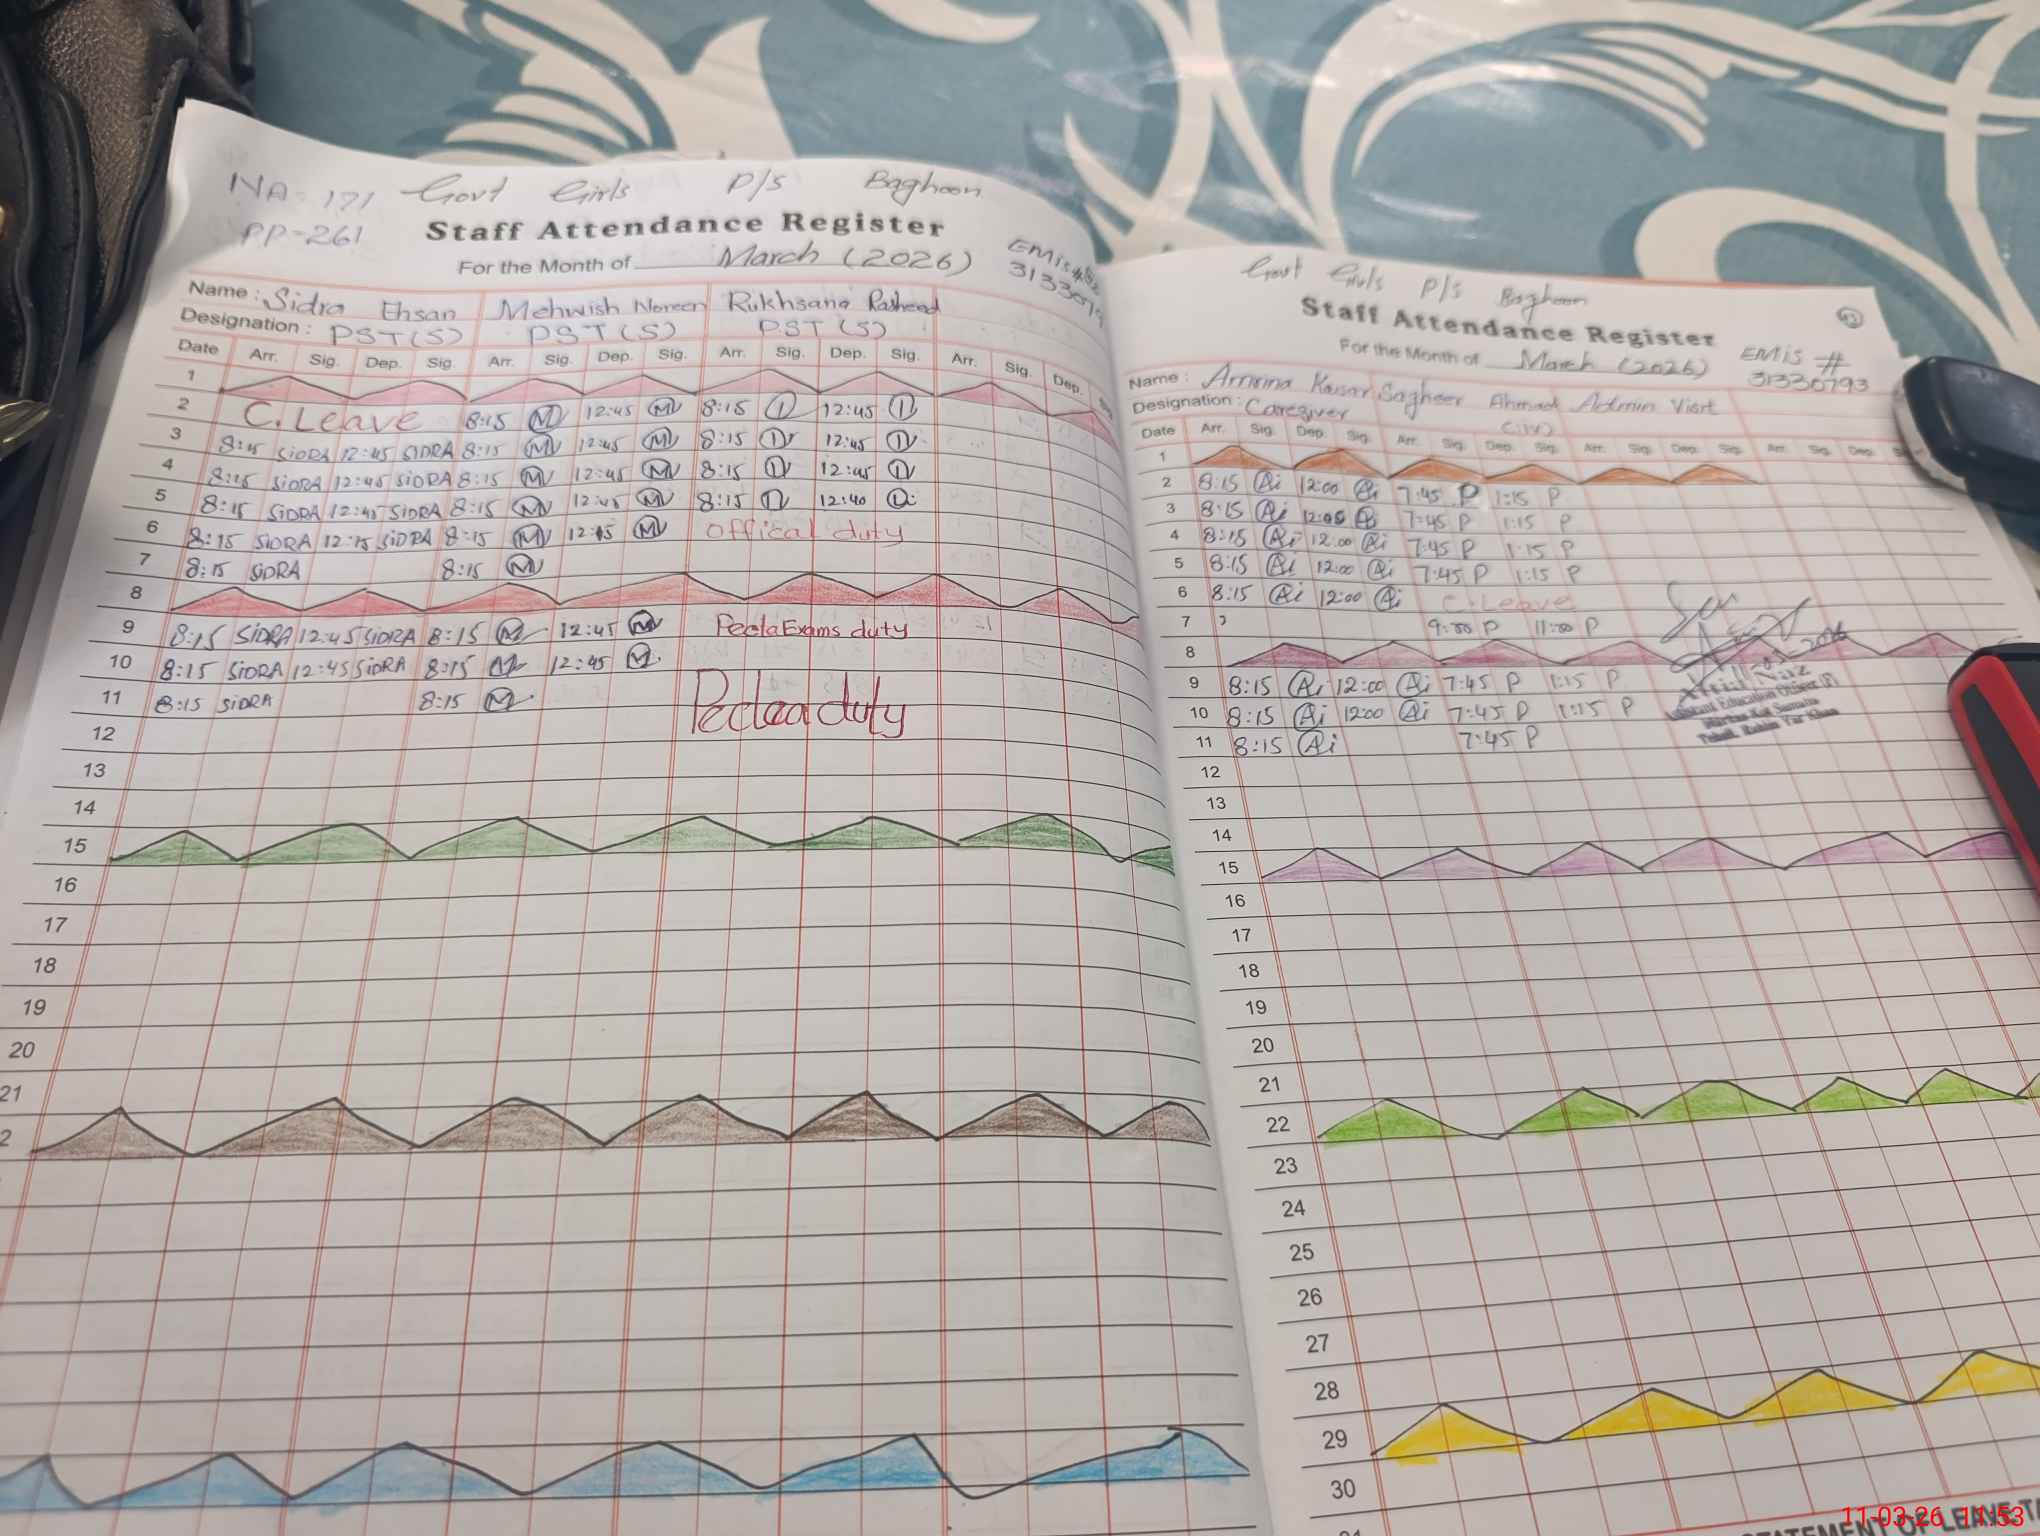 NA-171 Govt Girls P/S Baghoon
PP-261 Staff Attendance Register
For the Month of March (2026)
EMIS #
Name: Sidra Ehsan Mehwish Noreen Rukhsana Rasheed
Designation: PST(S) PST(S) PST(S)
Date Arr. Sig. Dep. Sig. Arr. Sig. Dep. Sig. Arr. Sig. Dep. Sig. Arr. Sig. Dep.
1
2 C.Leave 8:15 M 12:45 M 8:15 12:45
3 8:15 SiDRA 12:45 SIDRA 8:15 M 12:45 M 8:15 12:45
4 8:15 SiDRA 12:45 SiDRA 8:15 M 12:45 M 8:15 12:45
5 8:15 SiDRA 12:45 SIDRA 8:15 M 12:45 M 8:15 12:40
6 8:15 SiDRA 12:15 SiDRA 8:15 M 12:15 M offical duty
7 8:15 SiDRA 8:15 M
8
9 8:15 SiDRA 12:45 SiDRA 8:15 M 12:45 M Pecta Exams duty
10 8:15 SiDRA 12:45 SiDRA 8:15 M 12:45 M
11 8:15 SiDRA 8:15 M duty
12
13
14
15
16
17
18
19
20
21
2
Govt Girls P/S Baghoon
Staff Attendance Register
For the Month of March (2026)
EMIS #
31330793
Name: Kausar Sagheer Ahmad Admin Visit
Designation: Caregiver (IV)
Date Arr. Sig. Dep. Sig. Arr. Sig. Dep. Sig. Arr. Sig. Dep. Sig. Arr. Sig. Dep.
1
2 8:15 Ai 12:00 Ai 7:45 P 1:15 P
3 8:15 Ai 12:05 Ai 7:45 P 1:15 P
4 8:15 Ai 12:00 Ai 7:45 P 1:15 P
5 8:15 Ai 12:00 Ai 7:45 P 1:15 P
6 8:15 Ai 12:00 Ai C.Leave
7 9:00 P 11:00 P
8
9 8:15 Ai 12:00 Ai 7:45 P 1:15 P
10 8:15 Ai 12:00 Ai 7:45 P 1:15 P
11 8:15 Ai 7:45 P
11-03-2026
Naz
Assistant Education Officer (F)
Markaz Kot Samaba
Tehsil Rahim Yar Khan
12
13
14
15
16
17
18
19
20
21
22
23
24
25
26
27
28
29
30
STATEMENT OF LEAVE TA
11-03-26 11:53